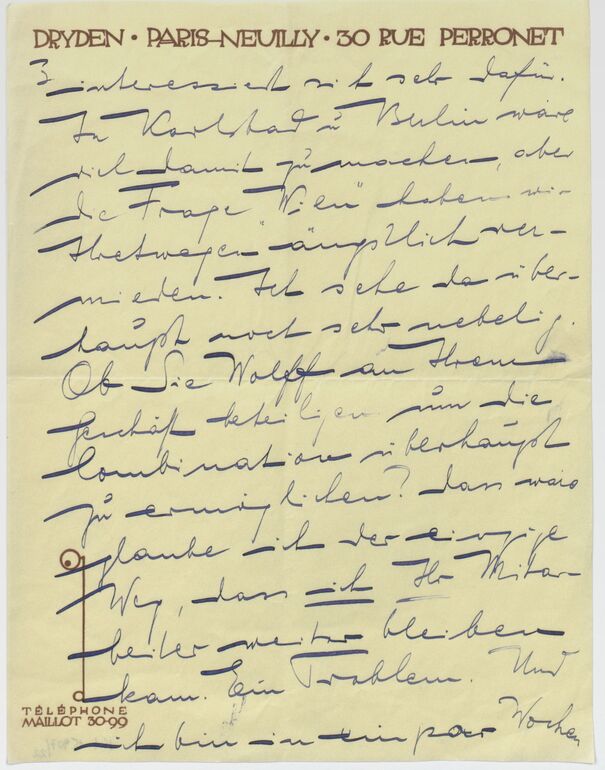 DRYDEN • PARIS-NEUILLY • 30 RUE PERRONET
3
interessiert sich sehr dafür.
In Karlsbad u Berlin wäre
viel damit zu machen, aber
die Frage "Wien" haben wir
Ihretwegen ängstlich ver-
mieden. Ich sehe da über-
haupt noch sehr nebelig.
Ob Sie Wolff an Ihrem
Geschäft beteiligen um die
Combination überhaupt
zu ermöglichen? Dass wäre
glaube ich der einzige
Weg, dass ich Ihr Mitar-
beiter weiter bleiben
kann. Ein Problem. Und
ich bin in ein par Wochen
TÉLÉPHONE
MAILLOT 30-99